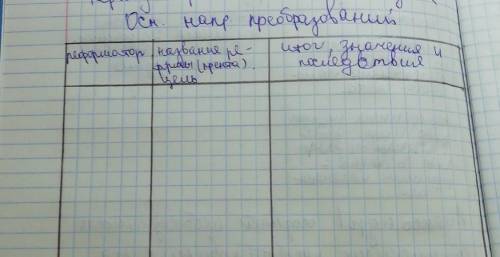 Осн. напр преобразований
реформатор
название ре-
формы (проекта).
цель
итог, значения и
последствия